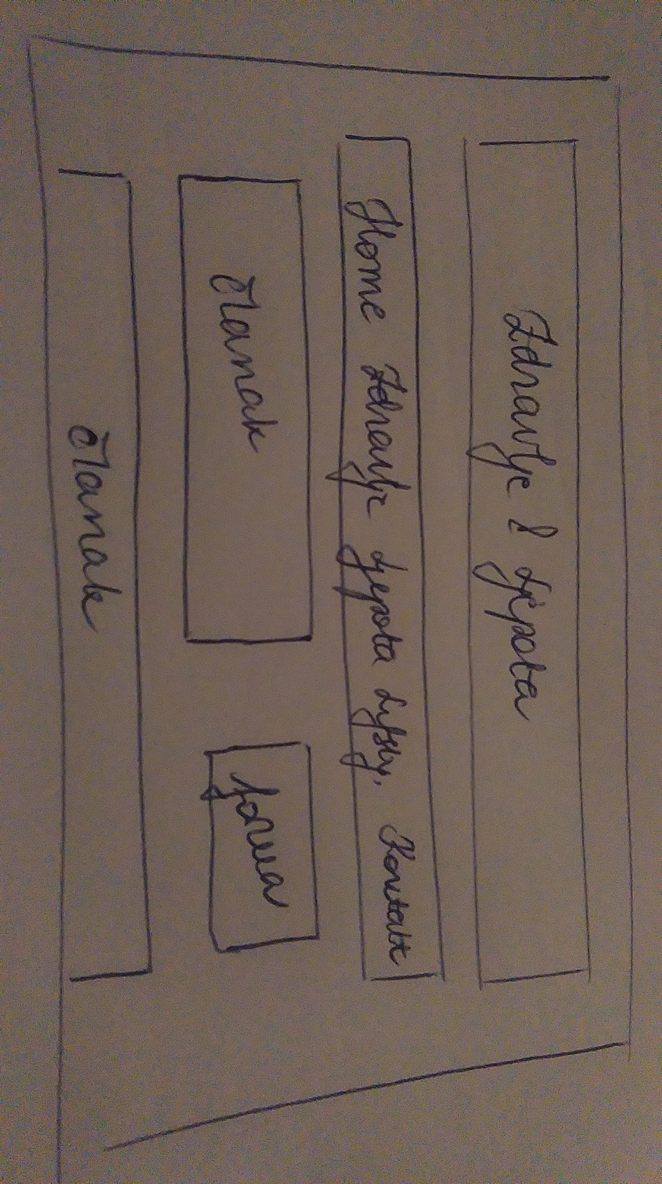 Zdravlje & Ljepota
Home Zdravlje Ljepota Lifsty. Kontakt
Članak
forma
Članak